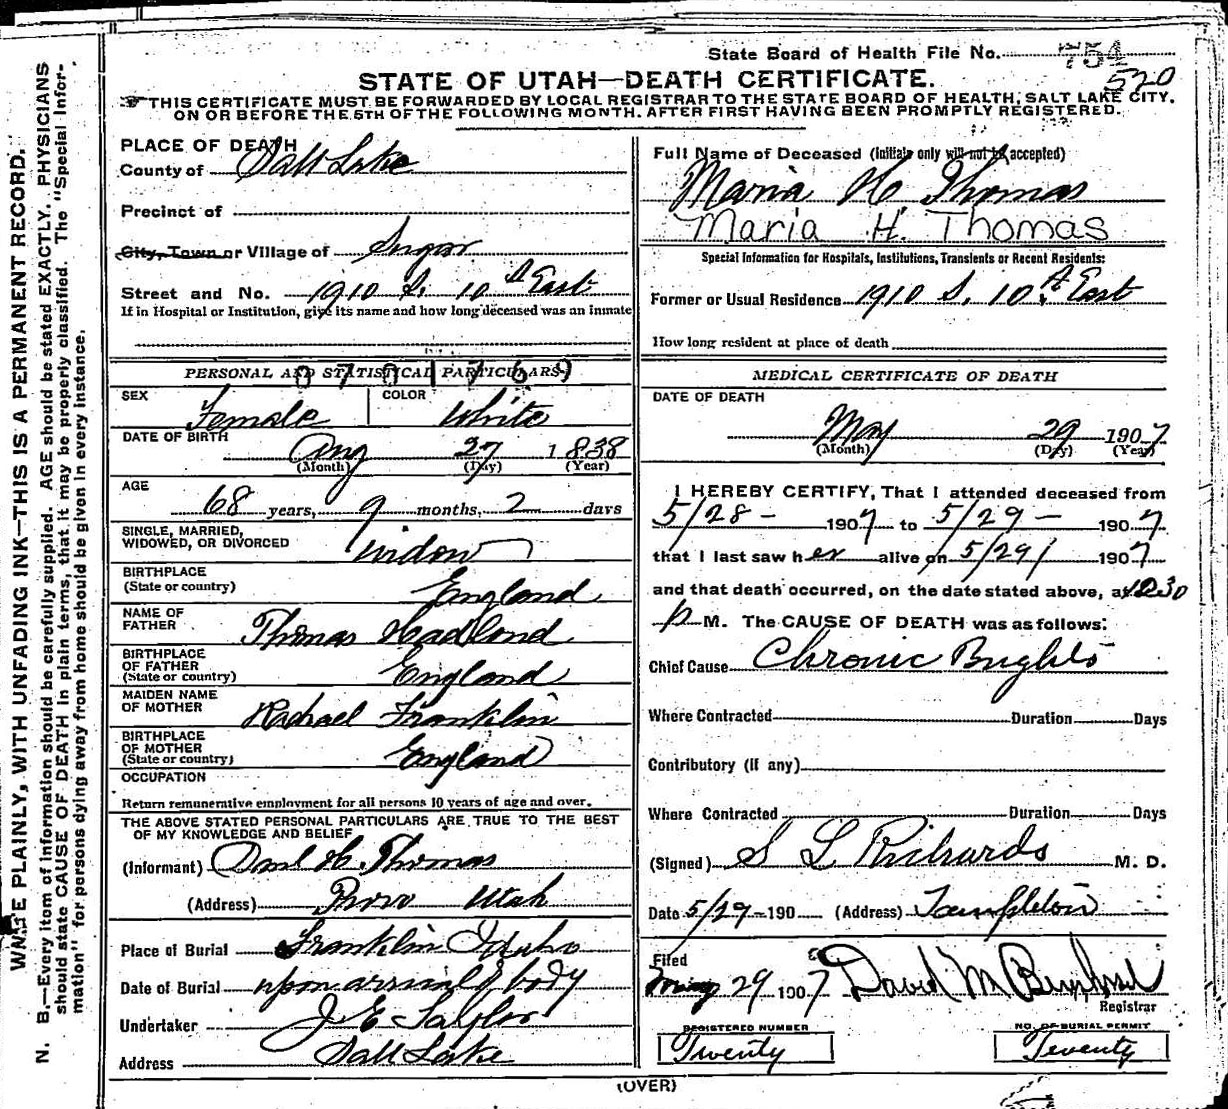 State Board of Health File No. 754
520
STATE OF UTAH—DEATH CERTIFICATE.
THIS CERTIFICATE MUST BE FORWARDED BY LOCAL REGISTRAR TO THE STATE BOARD OF HEALTH, SALT LAKE CITY,
ON OR BEFORE THE 5TH OF THE FOLLOWING MONTH. AFTER FIRST HAVING BEEN PROMPTLY REGISTERED.
PLACE OF DEATH
County of Salt Lake
Precinct of
City, Town or Village of Sugar
Street and No. 1910 S. 10th East
If in Hospital or Institution, give its name and how long deceased was an inmate
PERSONAL AND STATISTICAL PARTICULARS
0701769
SEX Female COLOR White
DATE OF BIRTH Aug 27 1838
(Month) (Day) (Year)
AGE
68 years, 9 months, 2 days
SINGLE, MARRIED,
WIDOWED, OR DIVORCED Widow
BIRTHPLACE
(State or country) England
NAME OF
FATHER Thomas Hadlond
BIRTHPLACE
OF FATHER
(State or country) England
MAIDEN NAME
OF MOTHER Rachael Franklin
BIRTHPLACE
OF MOTHER
(State or country) England
OCCUPATION
Return remunerative employment for all persons 10 years of age and over.
THE ABOVE STATED PERSONAL PARTICULARS ARE TRUE TO THE BEST
OF MY KNOWLEDGE AND BELIEF
(Informant) Danl H. Thomas
(Address) Provo Utah
Place of Burial Franklin Idaho
Date of Burial upon arrival of body
Undertaker J E Taylor
Address Salt Lake
Full Name of Deceased (Initials only will not be accepted)
Maria H. Thomas
Maria H. Thomas
Special Information for Hospitals, Institutions, Transients or Recent Residents:
Former or Usual Residence 1910 S. 10th East
How long resident at place of death
MEDICAL CERTIFICATE OF DEATH
DATE OF DEATH
May 29 1907
(Month) (Day) (Year)
I HEREBY CERTIFY, That I attended deceased from
5/28 - 1907 to 5/29 - 1907
that I last saw her alive on 5/29/ 1907
and that death occurred, on the date stated above, at 1030
p M. The CAUSE OF DEATH was as follows:
Chief Cause Chronic Brights
Where Contracted Duration Days
Contributory (if any)
Where Contracted Duration Days
(Signed) S L Richards M. D.
Date 5/29-190 (Address) Templeton
Filed
May 29 1907 David M
Registrar
REGISTERED NUMBER
Twenty
NO. OF BURIAL PERMIT
Twenty
(OVER)
WRITE PLAINLY, WITH UNFADING INK—THIS IS A PERMANENT RECORD.
N. B.—Every item of information should be carefully supplied. AGE should be stated EXACTLY. PHYSICIANS
should state CAUSE OF DEATH in plain terms, that it may be properly classified. The "Special Infor-
mation" for persons dying away from home should be given in every instance.